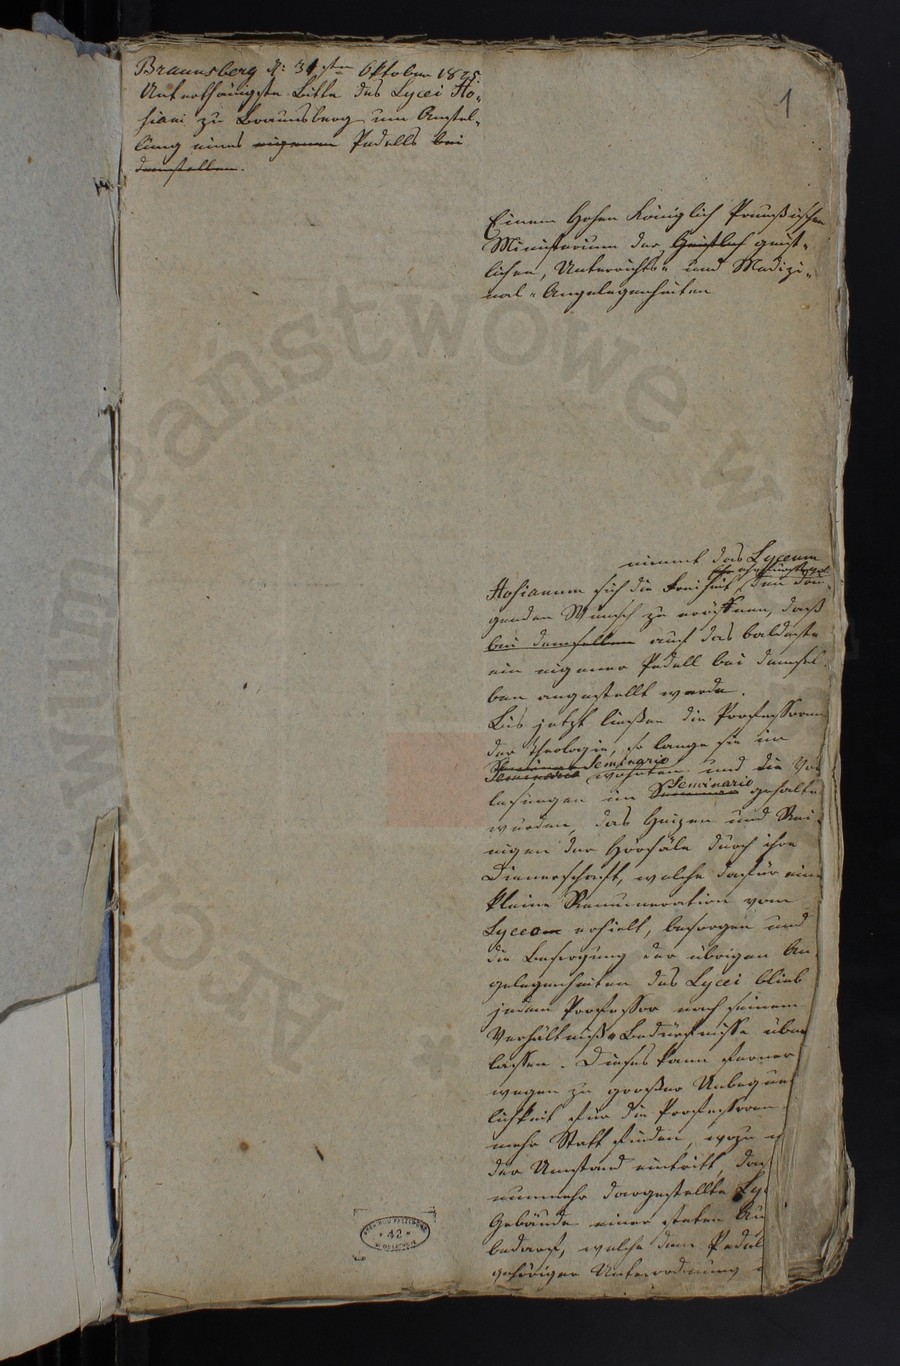 Braunsberg d: 31sten Oktober 1825.
Unterthänigste Bitte des Lycei Ho-
siani zu Braunsberg um Anstel-
lung eines eigenen Pedells bei
demselben.
1
Einem Hohen Königlich Preußischen
Ministerium der Geistlich geist-
lichen, Unterrichts- und Medizi-
nal-Angelegenheiten
nimmt das Lyceum
Hosianum sich die Freiheit, den drin-
genden Wunsch zu eröffnen, daß
bei demselben auf das baldeste
ein eigener Pedell bei demsel-
ben angestellt werde.
Bis jetzt ließen die Professoren
der Theologie, so lange sie im
Seminario
Seminario wohnten und die Vor
Seminario
lesungen im gehalten
wurden, das Heizen und Rei-
nigen der Hörsäle durch ihre
Dienerschaft, welche dafür eine
kleine Remuneration vom
Lyceo erhielt, besorgen und
die Besorgung der übrigen An-
gelegenheiten des Lycei blieb
jedem Professor nach seinem
Verhältniß-Bedürfnisse über
lassen. Dieses kann ferner
wegen zu großer Unbequem
lichkeit für die Professoren
mehr Statt finden, wozu
der Umstand eintritt, daß
nunmehr dargestellte Ly
Gebäude einer steten Au
bedarf, welche dem Pedell
gehöriger Unterordnung
PAŃSTWOWE W
ARCHIWUM
42